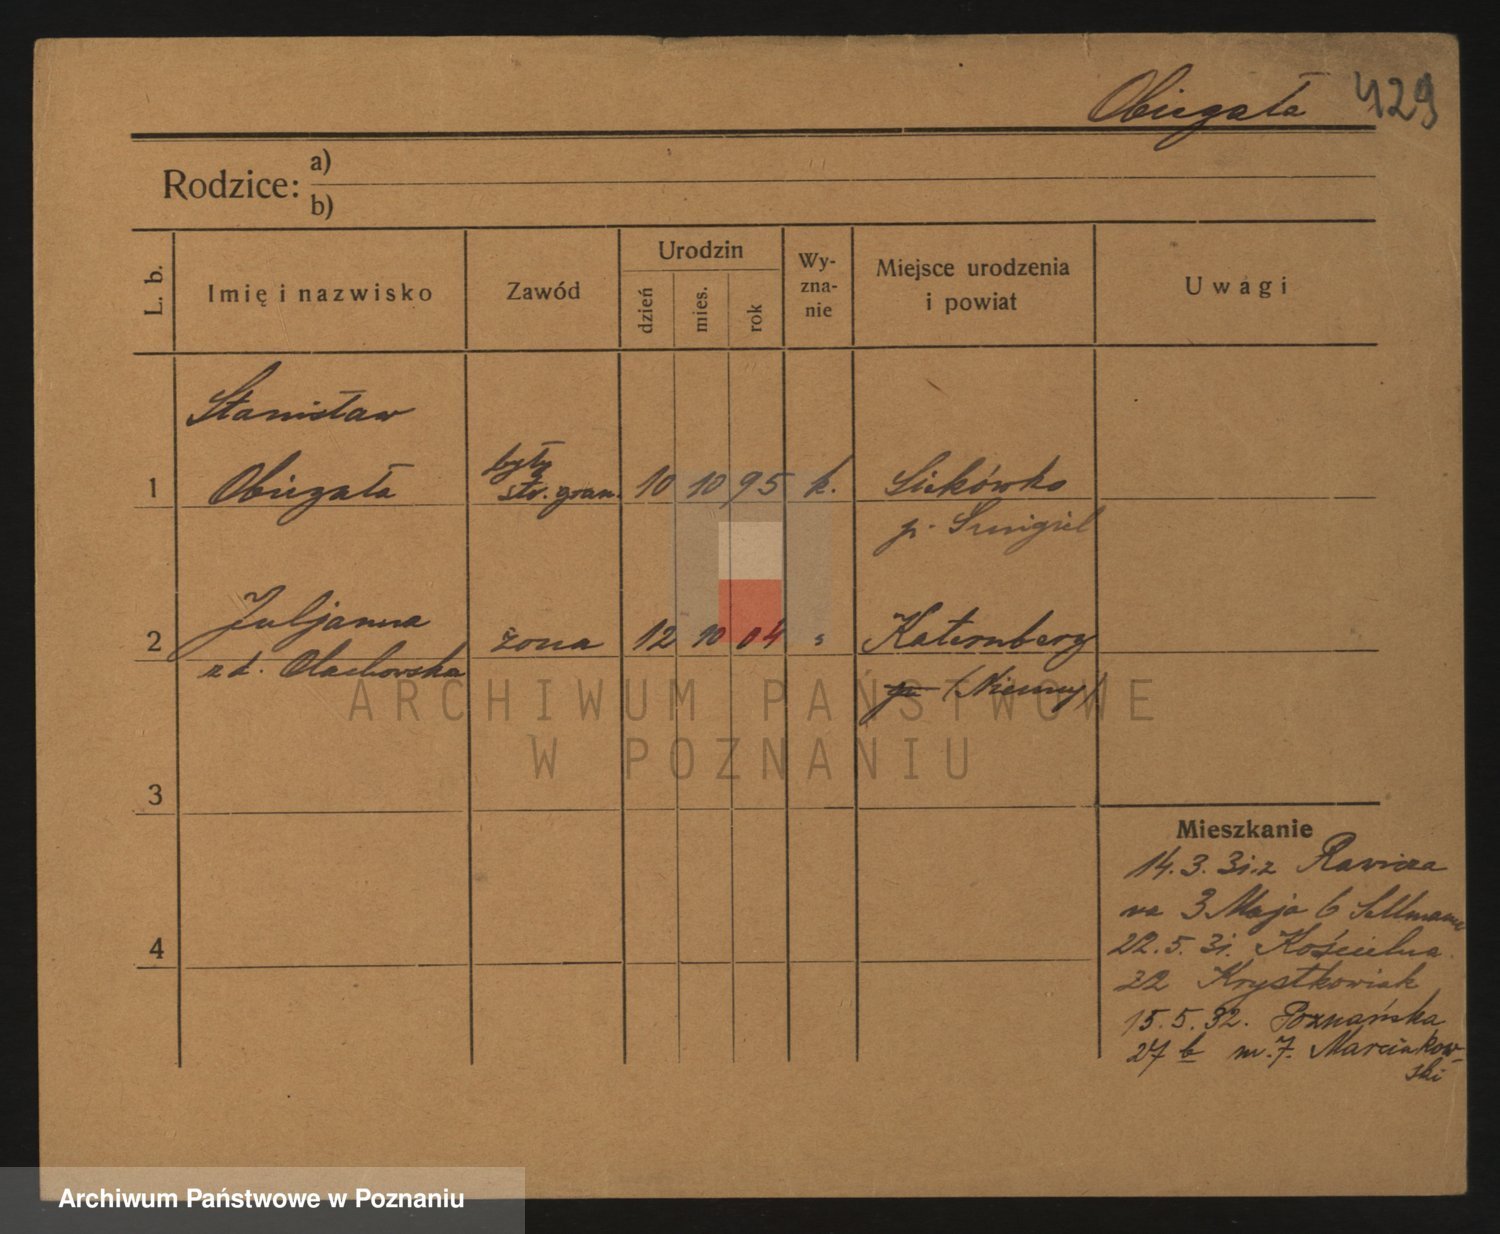 Obiegała 429
Rodzice: a)
b)
L. b.
Imię i nazwisko
Zawód
Urodzin
dzień
mies.
rok
Wy-
zna-
nie
Miejsce urodzenia
i powiat
Uwagi
Stanisław
1 Obiegała były str. gran. 10 10 95 k.
p. Śmigiel
2 Juljanna żona 12 10 04 " Katernberg
zd. Olachowska p. (Niemcy)
3
4
Mieszkanie
14.3.31. z Rawicza
na 3 Maja 6
22.5.31. Kościelna
22 Krystkowiak
15.5.32. Poznańska
27 b m. 7. Marcinkow-
ski
ARCHIWUM PAŃSTWOWE
W POZNANIU
Archiwum Państwowe w Poznaniu